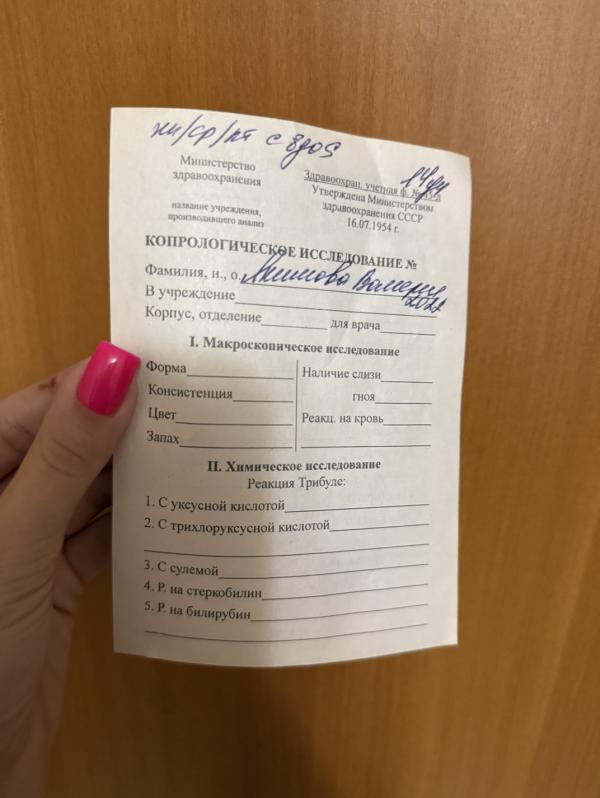 пн/ср/пт с 8 до 9
Министерство
здравоохранения
название учреждения,
производившего анализ
Здравоохран. учетная ф. №
Утверждена Министерством
здравоохранения СССР
16.07.1954 г.
КОПРОЛОГИЧЕСКОЕ ИССЛЕДОВАНИЕ №
Фамилия, и., о.
В учреждение 2022
Корпус, отделение для врача
I. Макроскопическое исследование
Форма
Консистенция
Цвет
Запах
Наличие слизи
гноя
Реакц. на кровь
II. Химическое исследование
Реакция Трибуле:
1. С уксусной кислотой
2. С трихлоруксусной кислотой
3. С сулемой
4. Р. на стеркобилин
5. Р. на билирубин